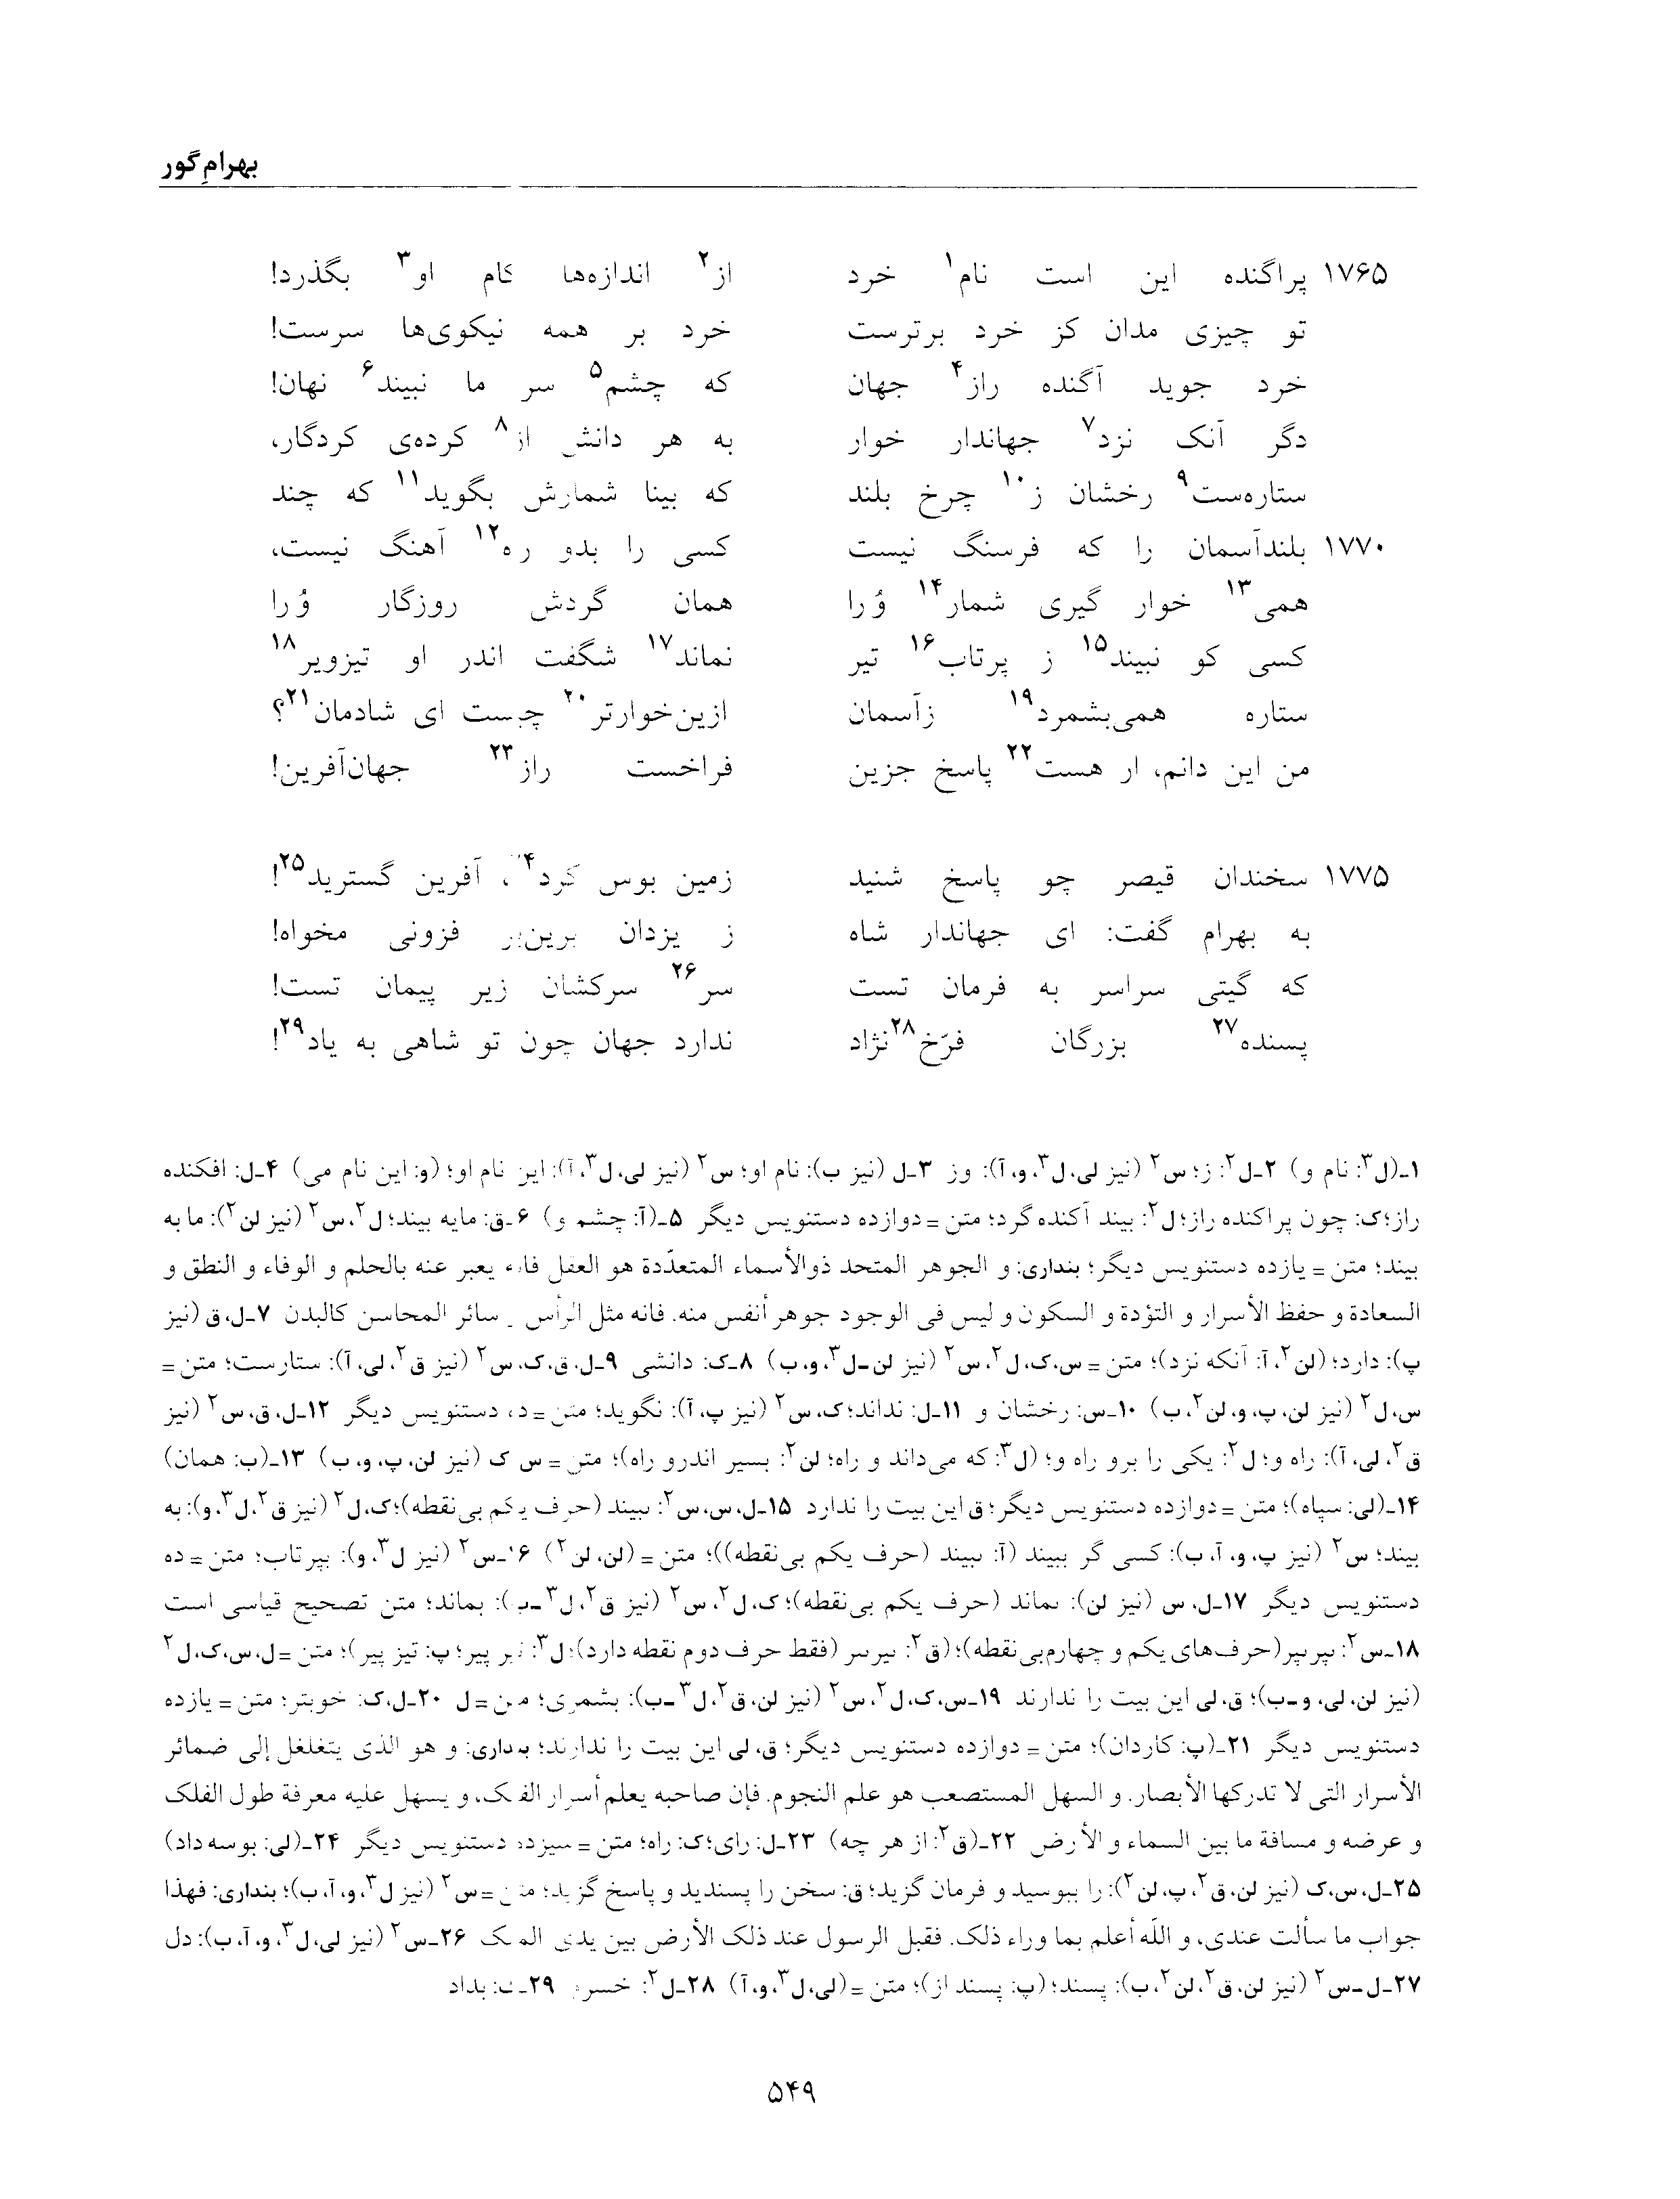 بهرامِ گور
۱۷۶۵ پراگنده این است نام۱ خرد از۲ اندازه‌ها کام او۳ بگذرد!
تو چیزی مدان کز خرد برترست خرد بر همه نیکوی‌ها سرست!
خرد جوید آگنده راز۴ جهان که چشم۵ سر ما نبیند۶ نهان!
دگر آنک نزد۷ جهاندار خوار به هر دانش از۸ کرده‌ی کردگار،
ستاره‌ست۹ رخشان ز۱۰ چرخ بلند که بینا شمارش بگوید۱۱ که چند
۱۷۷۰ بلندآسمان را که فرسنگ نیست کسی را بدو ره۱۲ آهنگ نیست،
همی۱۳ خوار گیری شمار۱۴ وُ را همان گردش روزگار وُ را
کسی کو نبیند۱۵ ز پرتاب۱۶ تیر نماند۱۷ شگفت اندر او تیزویر۱۸
ستاره همی‌بشمرد۱۹ زآسمان ازین‌خوارتر۲۰ چیست ای شادمان۲۱؟
من این دانم، ار هست۲۲ پاسخ جزین فراخست راز۲۳ جهان‌آفرین!
۱۷۷۵ سخندان قیصر چو پاسخ شنید زمین بوس کرد۲۴، آفرین گسترید۲۵!
به بهرام گفت: ای جهاندار شاه ز یزدان برین‌بر فزونی مخواه!
که گیتی سراسر به فرمان تست سر۲۶ سرکشان زیر پیمان تست!
پسنده۲۷ بزرگان فرّخ۲۸نژاد ندارد جهان چون تو شاهی به یاد۲۹!
۱ـ(ل۳: نام و) ۲ـل۲: ز؛ س۲ (نیز لی، ل۳، و، آ): وز ۳ـل (نیز ب): نام او؛ س۲ (نیز لی، ل۳، آ): این نام او؛ (و: این نام می) ۴ـل: افکنده
راز؛ ک: چون پراکنده راز؛ ل۲: بیند آکنده گرد؛ متن = دوازده دستنویس دیگر ۵ـ(آ: چشم و) ۶ـق: مایه بیند؛ ل۲، س۲ (نیز لن۲): ما به
بیند؛ متن = یازده دستنویس دیگر؛ بنداری: و الجوهر المتحد ذوالأسماء المتعدّدة هو العقل فانه یعبر عنه بالحلم و الوفاء و النطق و
السعادة و حفظ الأسرار و التؤدة و السکون و لیس فی الوجود جوهر أنفس منه. فانه مثل الرأس و سائر المحاسن کالبدن ۷ـل، ق (نیز
پ): دارد؛ (لن۲، آ: آنکه نزد)؛ متن = س، ک، ل۲، س۲ (نیز لن ـ ل۳، و، ب) ۸ـک: دانشی ۹ـل، ق، ک، س۲ (نیز ق۲، لی، آ): ستارست؛ متن =
س، ل۲ (نیز لن، پ، و، لن۲، ب) ۱۰ـس: رخشان و ۱۱ـل: نداند؛ ک، س۲ (نیز پ، آ): نگوید؛ متن = ده دستنویس دیگر ۱۲ـل، ق، س۲ (نیز
ق۲، لی، آ): راه و؛ ل۲: یکی را برو راه و؛ (ل۳: که می‌داند و راه؛ لن۲: بسیر اندرو راه)؛ متن = س ک (نیز لن، پ، و، ب) ۱۳ـ(ب: همان)
۱۴ـ(لی: سپاه)؛ متن = دوازده دستنویس دیگر؛ ق این بیت را ندارد ۱۵ـل، س، س۲: ببیند (حرف یکم بی‌نقطه)؛ ک، ل۲ (نیز ق۲، ل۳، و): به
بیند؛ س۲ (نیز پ، و، آ، ب): کسی گر ببیند (آ: ببیند (حرف یکم بی‌نقطه))؛ متن = (لن، لن۲) ۱۶ـس۲ (نیز ل۳، و): بپرتاب؛ متن = ده
دستنویس دیگر ۱۷ـل، س (نیز لن): بماند (حرف یکم بی‌نقطه)؛ ک، ل۲، س۲ (نیز ق۲، ل۳ ـ ب): بماند؛ متن تصحیح قیاسی است
۱۸ـس۲: (حرف‌های یکم و چهارم بی‌نقطه)؛ (ق۲: (فقط حرف دوم نقطه دارد)؛ ل۳: پیر؛ پ: تیز پیر)؛ متن = ل، س، ک، ل۲
(نیز لن، لی، و ـ ب)؛ ق، لی این بیت را ندارند ۱۹ـس، ک، ل۲، س۲ (نیز لن، ق۲، ل۳ ـ ب): بشمری؛ متن = ل ۲۰ـل، ک: خوبتر؛ متن = یازده
دستنویس دیگر ۲۱ـ(پ: کاردان)؛ متن = دوازده دستنویس دیگر؛ ق، لی این بیت را ندارند؛ بنداری: و هو الذی یتغلغل إلی ضمائر
الأسرار التی لا تدرکها الأبصار. و السهل المستصعب هو علم النجوم. فإن صاحبه یعلم أسرار الفلک، و یسهل علیه معرفة طول الفلک
و عرضه و مسافة ما بین السماء و الأرض ۲۲ـ(ق۲: از هر چه) ۲۳ـل: رای؛ ک: راه؛ متن = سیزده دستنویس دیگر ۲۴ـ(لی: بوسه داد)
۲۵ـل، س، ک (نیز لن، ق۲، پ، لن۲): را ببوسید و فرمان گزید؛ ق: سخن را پسندید و پاسخ گزید؛ متن = س۲ (نیز ل۳، و، آ، ب)؛ بنداری: فهذا
جواب ما سألت عندی، و اللّه أعلم بما وراء ذلک. فقبل الرسول عند ذلک الأرض بین یدی الملک ۲۶ـس۲ (نیز لی، ل۳، و، آ، ب): دل
۲۷ـل ـ س۲ (نیز لن، ق۲، لن۲، ب): پسند؛ (پ: پسند از)؛ متن = (لی، ل۳، و، آ) ۲۸ـل۲: خسرو ۲۹ـ: بداد
۵۴۹